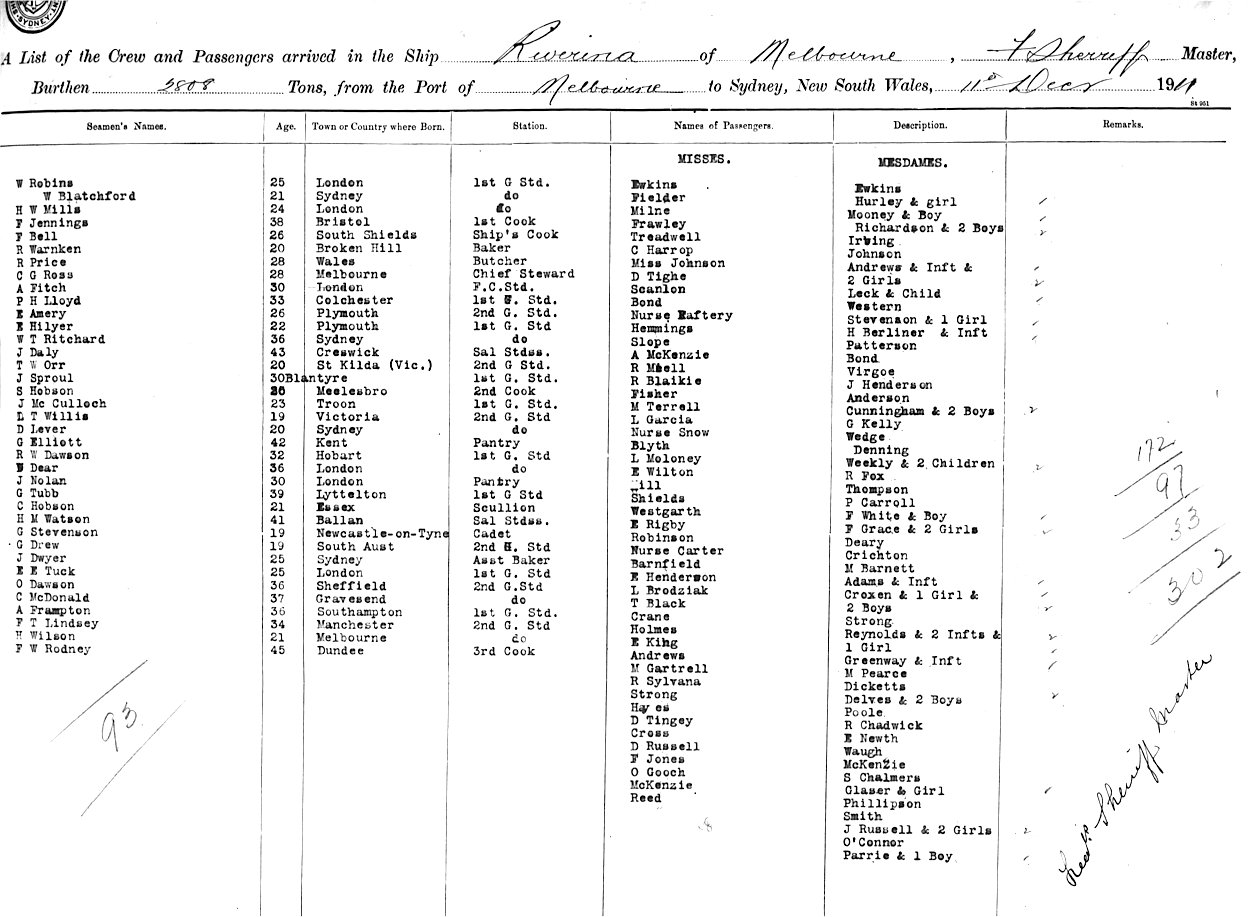 SYDNEY
A List of the Crew and Passengers arrived in the Ship Riverina of Melbourne, F Sherriff Master,
Burthen 5808 Tons, from the Port of Melbourne to Sydney, New South Wales, 11th Decr 1911
84951
Seamen's Names. Age. Town or Country where Born. Station. Names of Passengers. Description. Remarks.
W Robins 25 London 1st G Std.
W Blatchford 21 Sydney do
H W Mills 24 London do
F Jennings 38 Bristol 1st Cook
F Bell 26 South Shields Ship's Cook
R Warnken 20 Broken Hill Baker
R Price 28 Wales Butcher
C G Ross 28 Melbourne Chief Steward
A Fitch 30 London F.C.Std.
P H Lloyd 33 Colchester 1st G. Std.
E Amery 26 Plymouth 2nd G. Std.
E Hilyer 22 Plymouth 1st G. Std
W T Ritchard 36 Sydney do
J Daly 43 Creswick Sal Stdss.
T W Orr 20 St Kilda (Vic.) 2nd G Std.
J Sproul 30 Blantyre 1st G. Std.
S Hobson 26 Meelesbro 2nd Cook
J Mc Culloch 23 Troon 1st G. Std.
L T Willis 19 Victoria 2nd G. Std
D Lever 20 Sydney do
G Elliott 42 Kent Pantry
R W Dawson 32 Hobart 1st G. Std
W Dear 36 London do
J Nolan 30 London Pantry
G Tubb 39 Lyttelton 1st G Std
C Hobson 21 Essex Scullion
H M Watson 41 Ballan Sal Stdss.
G Stevenson 19 Newcastle-on-Tyne Cadet
G Drew 19 South Aust 2nd G. Std
J Dwyer 25 Sydney Asst Baker
E E Tuck 25 London 1st G. Std
O Dawson 36 Sheffield 2nd G.Std
C McDonald 37 Gravesend do
A Frampton 36 Southampton 1st G. Std.
F T Lindsey 34 Manchester 2nd G. Std
H Wilson 21 Melbourne do
F W Rodney 45 Dundee 3rd Cook
93
MISSES.
Ewkins
Fielder
Milne
Frawley
Treadwell
C Harrop
Miss Johnson
D Tighe
Scanlon
Bond
Nurse Raftery
Hemmings
Slope
A McKenzie
R Mbell
R Blaikie
Fisher
M Terrell
L Garcia
Nurse Snow
Blyth
L Moloney
E Wilton
ill
Shields
Westgarth
E Rigby
Robinson
Nurse Carter
Barnfield
E Henderson
L Brodziak
T Black
Crane
Holmes
E King
Andrews
M Gartrell
R Sylvana
Strong
Hayes
D Tingey
Cross
D Russell
F Jones
O Gooch
McKenzie
Reed
8
MESDAMES.
Ewkins
Hurley & girl
Mooney & Boy
Richardson & 2 Boys
Irving
Johnson
Andrews & Inft &
2 Girls
Leck & Child
Western
Stevenson & 1 Girl
H Berliner & Inft
Patterson
Bond
Virgoe
J Henderson
Anderson
Cunningham & 2 Boys
G Kelly
Wedge
Denning
Weekly & 2 Children
R Fox
Thompson
P Carroll
F White & Boy
F Grace & 2 Girls
Deary
Crichton
M Barnett
Adams & Inft
Croxen & 1 Girl &
2 Boys
Strong
Reynolds & 2 Infts &
1 Girl
Greenway & Inft
M Pearce
Dicketts
Delves & 2 Boys
Poole
R Chadwick
E Newth
Waugh
McKenzie
S Chalmers
Glaser & Girl
Phillipson
Smith
J Russell & 2 Girls
O'Connor
Parrie & 1 Boy
172
97
33
302
Fredk Sheriff Master